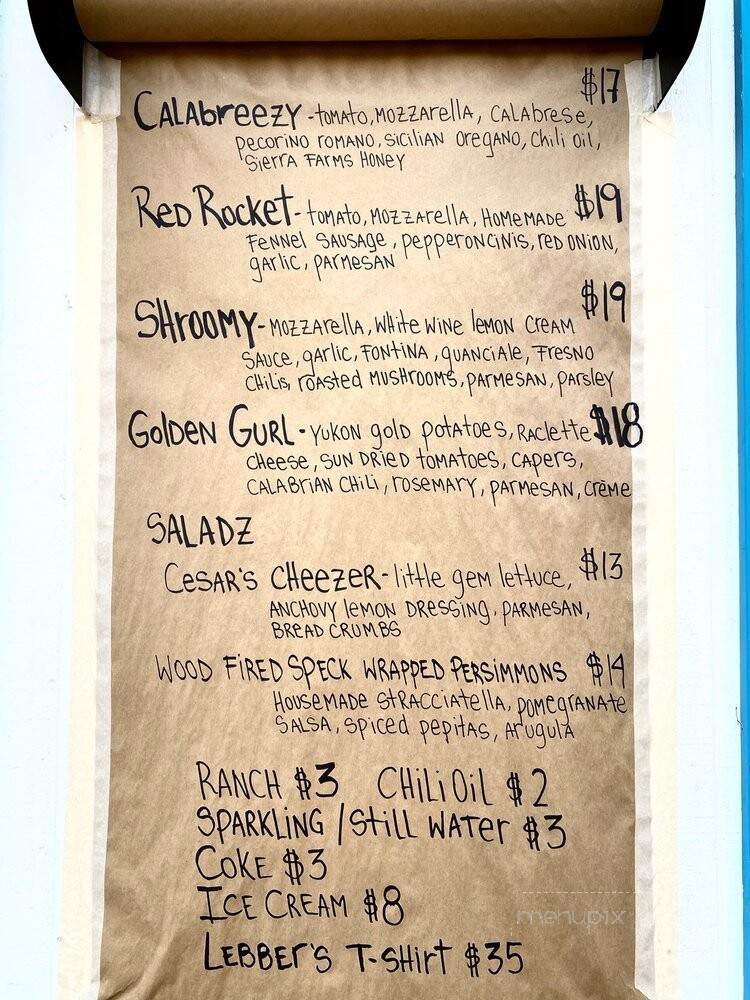 $17
CALAbreezy - tomato, MOZZArella, CALAbrese,
pecorino romano, sicilian oregano, chili oil,
Sierra FArms Honey
Red Rocket - tomato, MOZZArella, Homemade $19
Fennel SAUSAge, pepperoncinis, red onion,
garlic, pArmesan
$19
SHroomy - MOZZArella, White wine lemon cream
SAUCe, garlic, Fontina, guanciale, Fresno
Chilis, roasted mushrooms, pArmesan, parsley
Golden Gurl - yukon gold potatoes, Raclette $18
cheese, sun dried tomatoes, capers,
CALAbriAn CHili, rosemary, pArmesan, crème
SALADZ
Cesar's CHeezer - little gem lettuce, $13
ANCHOVY lemon Dressing, pArmesan,
BreAD CrumBs
Wood Fired Speck wrapped Persimmons $14
Housemade strAcciatella, pomegranate
SALSA, spiced pepitas, Arugula
RANCH $3 CHiLi Oil $2
SpArkling / Still WAter $3
Coke $3
Ice CreAm $8
LeBBer's T-SHirt $35
menupix